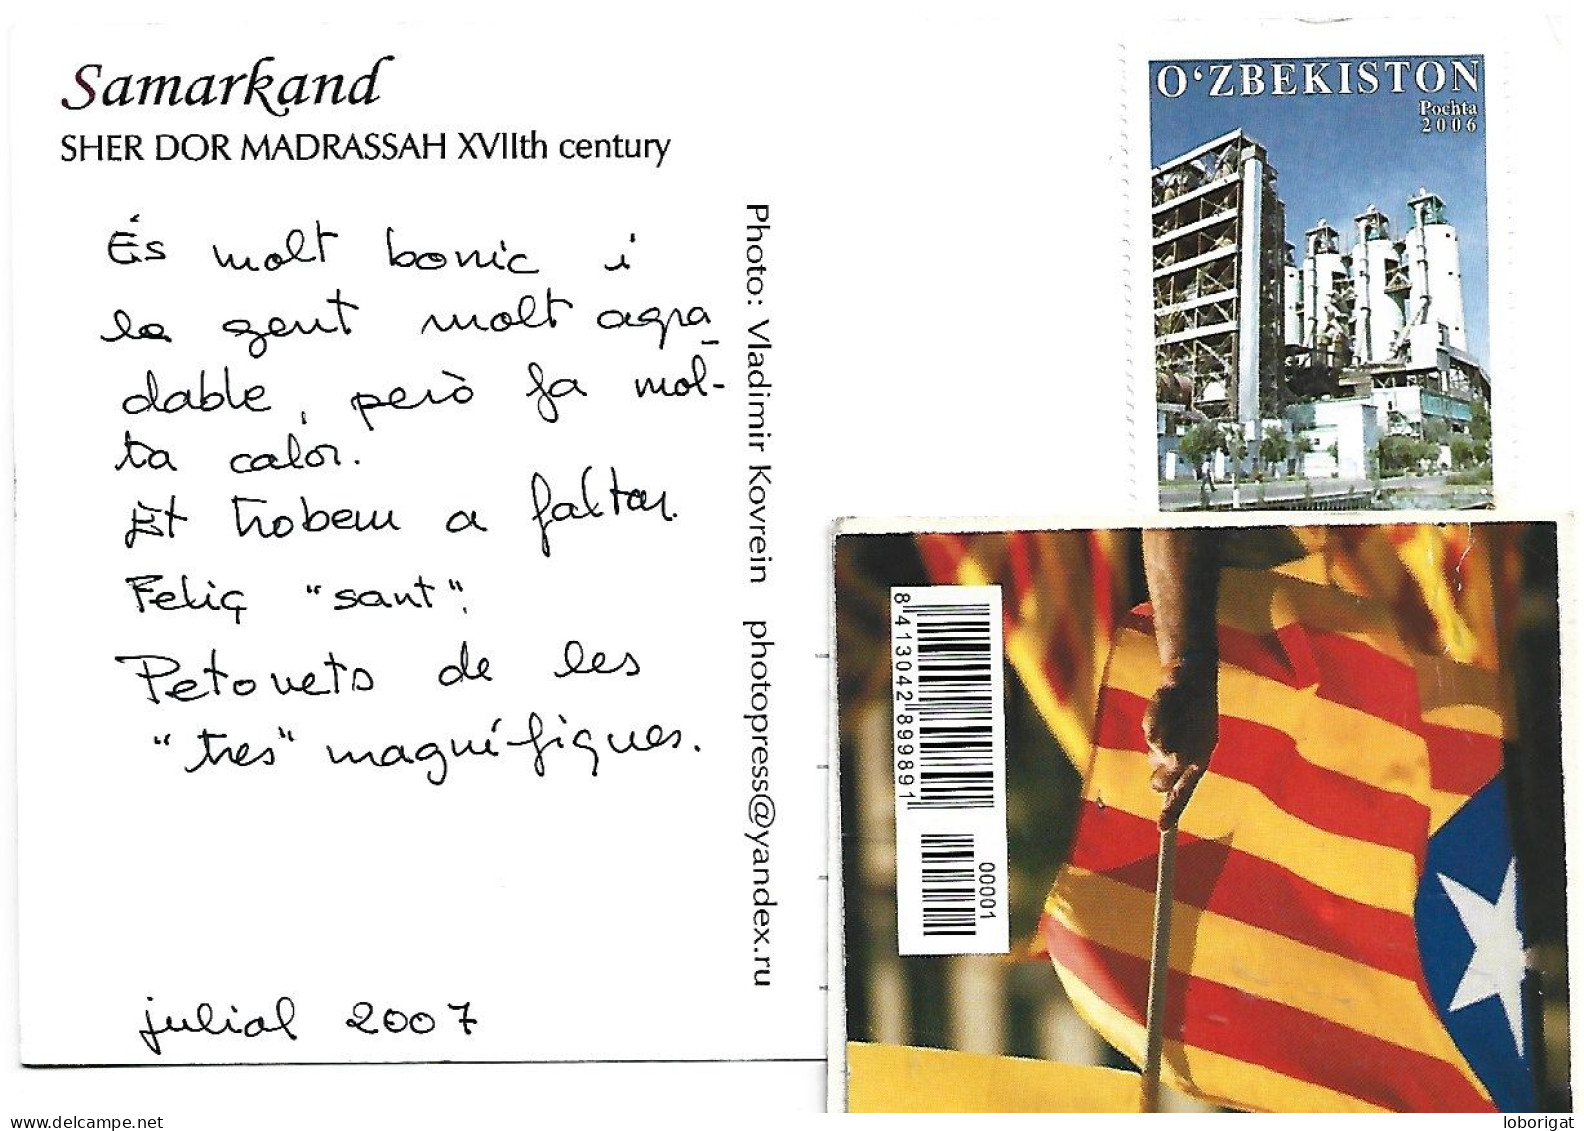 Samarkand
SHER DOR MADRASSAH XVIIth century
És molt bonic i
la gent molt agra-
dable, però fa mol-
ta calor.
Et trobem a faltar.
Feliç "sant".
Petonets de les
"tres" magnífiques.
juliol 2007
Photo: Vladimir Kovrein photopress@yandex.ru
O‘ZBEKISTON
Pochta
2006
8 413042 899891
00001
www.delcampe.net
loborigat